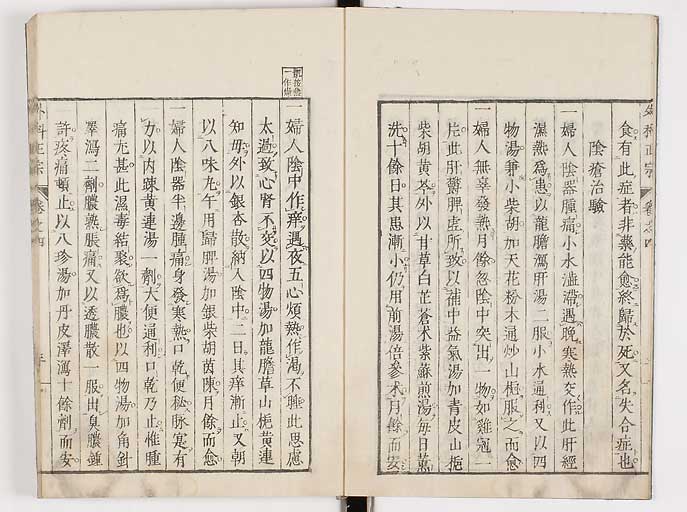 食有此症者非藥能愈終歸於死又名失合症也
陰瘡治驗
一婦人陰器腫痛小水澁滯遇晚寒熱交作此肝經
濕熱爲患以龍膽瀉肝湯二服小水通利又以四
物湯兼小柴胡加天花粉木通炒山梔服之而愈
一婦人無辜發熱月餘忽陰中突出一物如雞冠一
片此肝鬱脾虛所致以補中益氣湯加青皮山梔
柴胡黃芩外以甘草白芷蒼朮紫蘇煎湯每日薰
洗十餘日其患漸小仍用前湯倍參朮月餘而安
一婦人陰中作痒遇夜五心煩熱作渴不睡此思慮
太過致心腎不交以四物湯加龍膽草山梔黃連
知母外以銀杏散納入陰中二日其痒漸止又朝
以八味丸午用歸脾湯加銀柴胡茵陳月餘而愈
一婦人陰器半邊腫痛身發寒熱口乾便秘脉實有
力以内踈黃連湯一劑大便通利口乾乃止惟腫
痛尤甚此濕毒結聚欲爲膿也以四物湯加角針
澤瀉二劑膿熟脹痛又以透膿散一服出臭膿鍾
許疼痛頓止以八珍湯加丹皮澤瀉十餘劑而安
外科正宗
卷之四